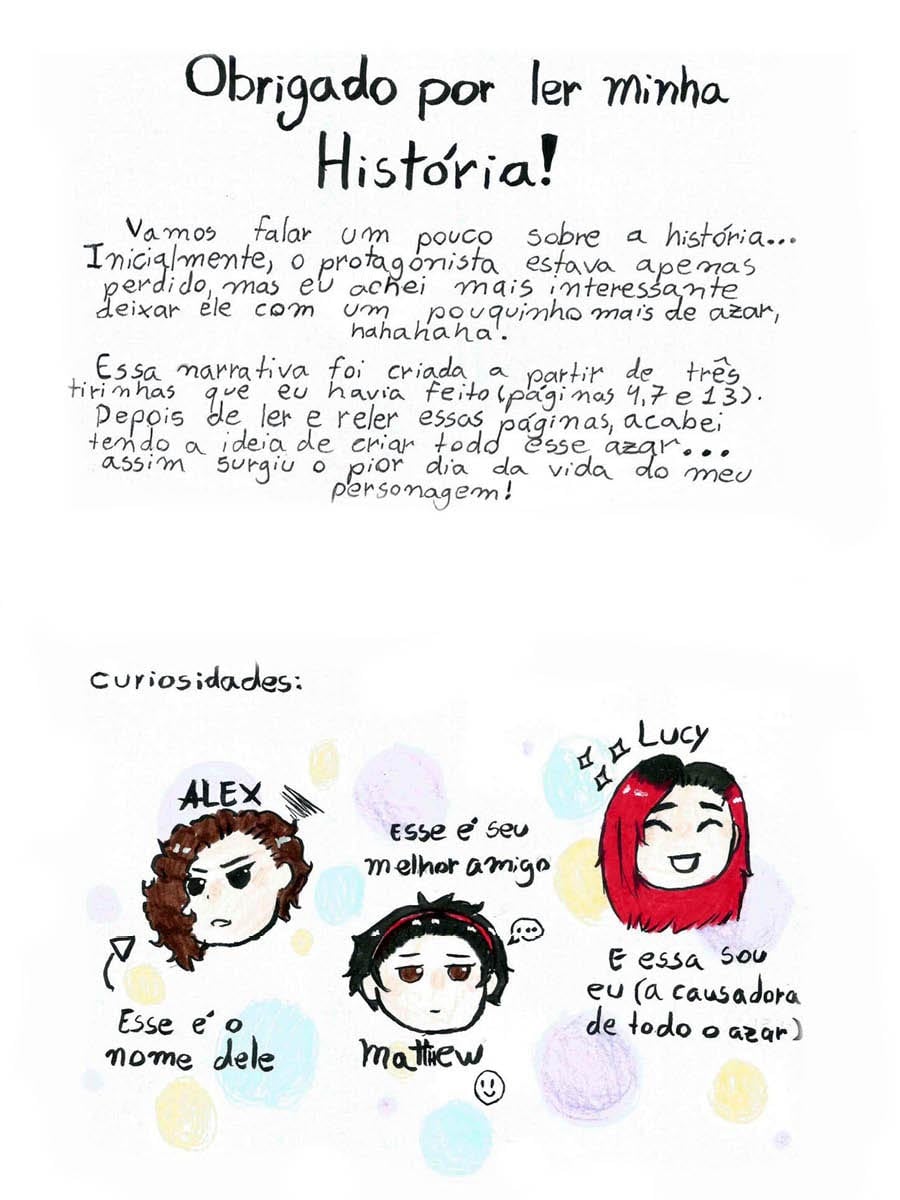 Obrigado por ler minha
História!
Vamos falar um pouco sobre a história...
Inicialmente, o protagonista estava apenas
perdido, mas eu achei mais interessante
deixar ele com um pouquinho mais de azar,
hahahaha!
Essa narrativa foi criada a partir de três
tirinhas que eu havia feito (páginas 4,7 e 13).
Depois de ler e reler essas páginas, acabei
tendo a ideia de criar todo esse azar...
assim surgiu o pior dia da vida do meu
personagem!
curiosidades:
ALEX
Esse é o
nome dele
Esse é seu
melhor amigo
Matthew
Lucy
E essa sou
eu (a causadora
de todo o azar)